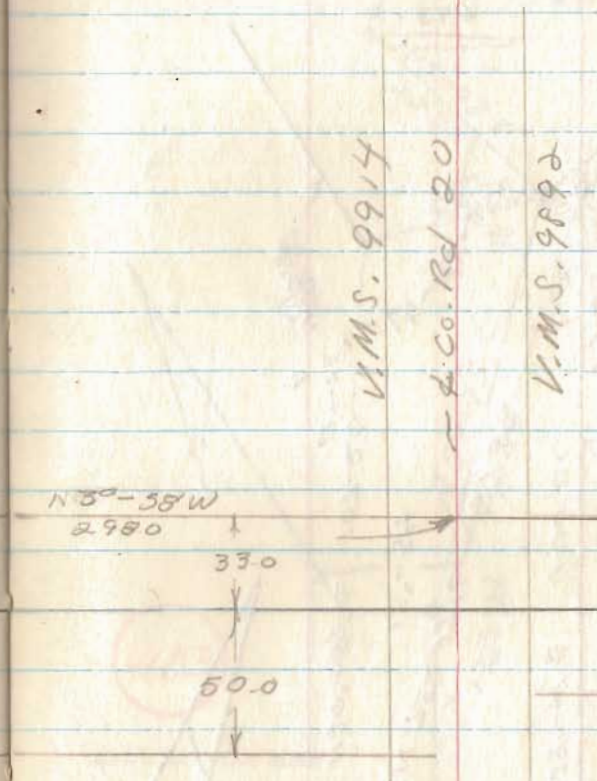 V.M.S. 9914
℄ Co. Rd 20
V.M.S. 9892
N 5°-58' W
2980
33.0
50.0